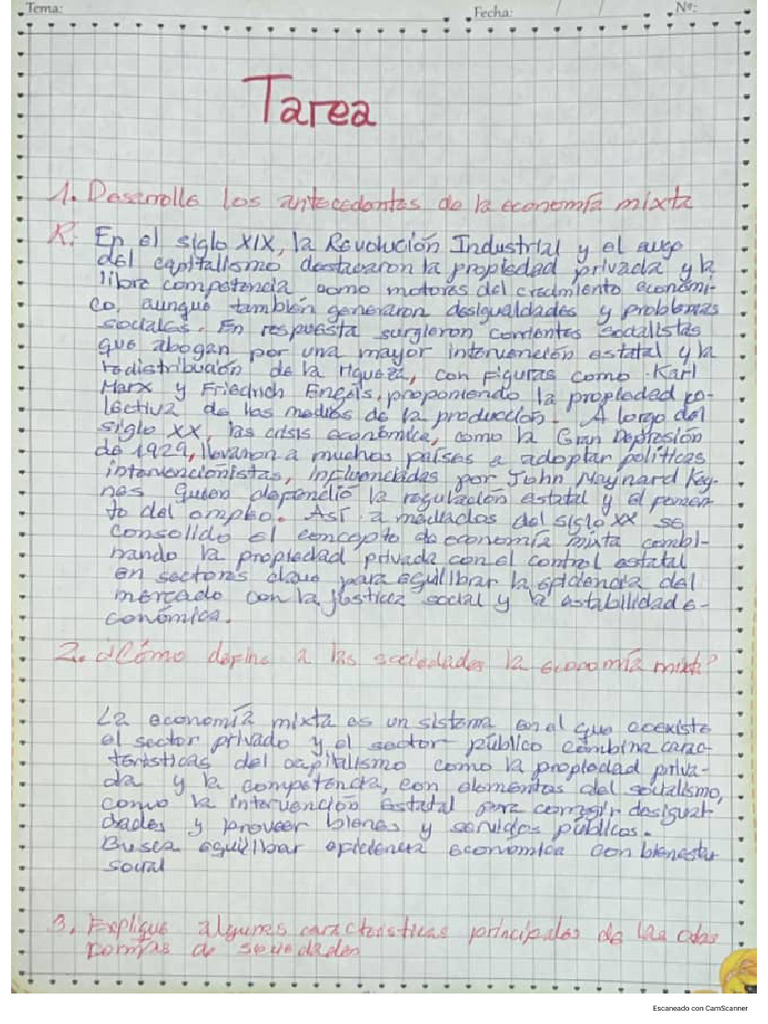 Tema:
Fecha: / /
Nº:
Tarea
1. Desarrolle los antecedentes de la economía mixta
R: En el siglo XIX, la Revolución Industrial y el auge
del capitalismo destacaron la propiedad privada y la
libre competencia como motores del crecimiento económi-
co, aunque también generaron desigualdades y problemas
sociales. En respuesta surgieron corrientes socialistas
que abogan por una mayor intervención estatal y la
redistribución de la riqueza, con figuras como Karl
Marx y Friedrich Engels, proponiendo la propiedad co-
lectiva de los medios de la producción. A lorgo del
siglo XX, las crisis económica, como la Gran Depresión
de 1929, llevaron a muchos países a adoptar políticas
intervencionistas, influenciadas por John Maynard Key-
nes quien defendió la regulación estatal y el fomen-
to del empleo. Así a mediados del siglo XX se
consolido el concepto de economía mixta combi-
nando la propiedad privada con el control estatal
en sectores clave para equilibar la eficiencia del
mercado con la justicia social y la estabilidad e-
conómica.
2. ¿Cómo define a las sociedades la economía mixta?
La economía mixta es un sistema en el que coexiste
el sector privado y el sector público combina carac-
terísticas del capitalismo como la propiedad priva-
da y la competencia, con elementos del socialismo,
como la intervención estatal para corregir desigual
dades y proveer bienes y servicios públicos.
Busca equilibar eficiencia económica con bienestar
social
3. Explique algunas características principales de las otras
formas de sociedades
Escaneado con CamScanner